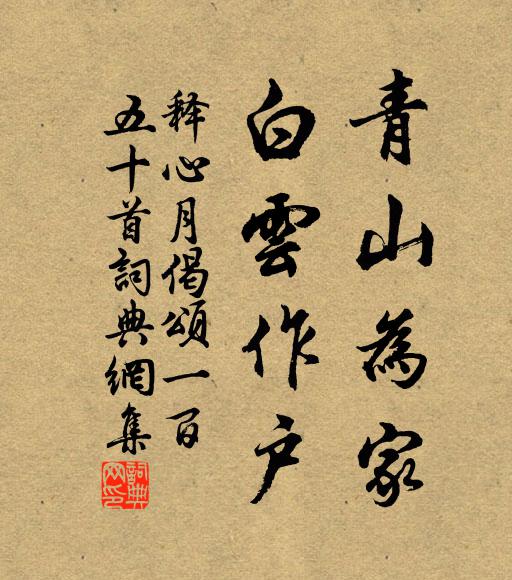 青山為家
白雲作户
释心月偈頌一百
五十首詞典網集
詞典网印